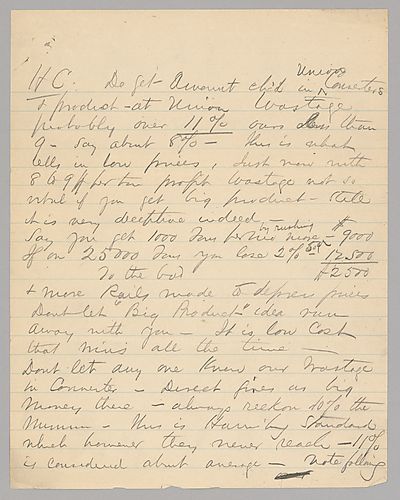 H C. Do get amount ch'd in Union Converters
+ product - at Union Wastage
probably over 11% ours less than
9 - say about 8% - this is what
tells in low prices, Just now with
8 to 9 $ per ton profit Wastage not so
vital if you get big product - still
it is very deceptive indeed -
Say you get 1000 Tons per mo more by rushing $9000
If on 25000 Tons you lose 2% 12500
To the bad $2500
+ more Rails made to depress prices
Dont let "Big Product" idea run
away with you - It is low Cost
that wins all the time -
Dont let any one Know our Wastage
in Converter - Direct gives us big
money there - always reckon 10% the
Minimum - this is Harrisb'g Standard
which however they never reach - 11%
is considered about average - Note following